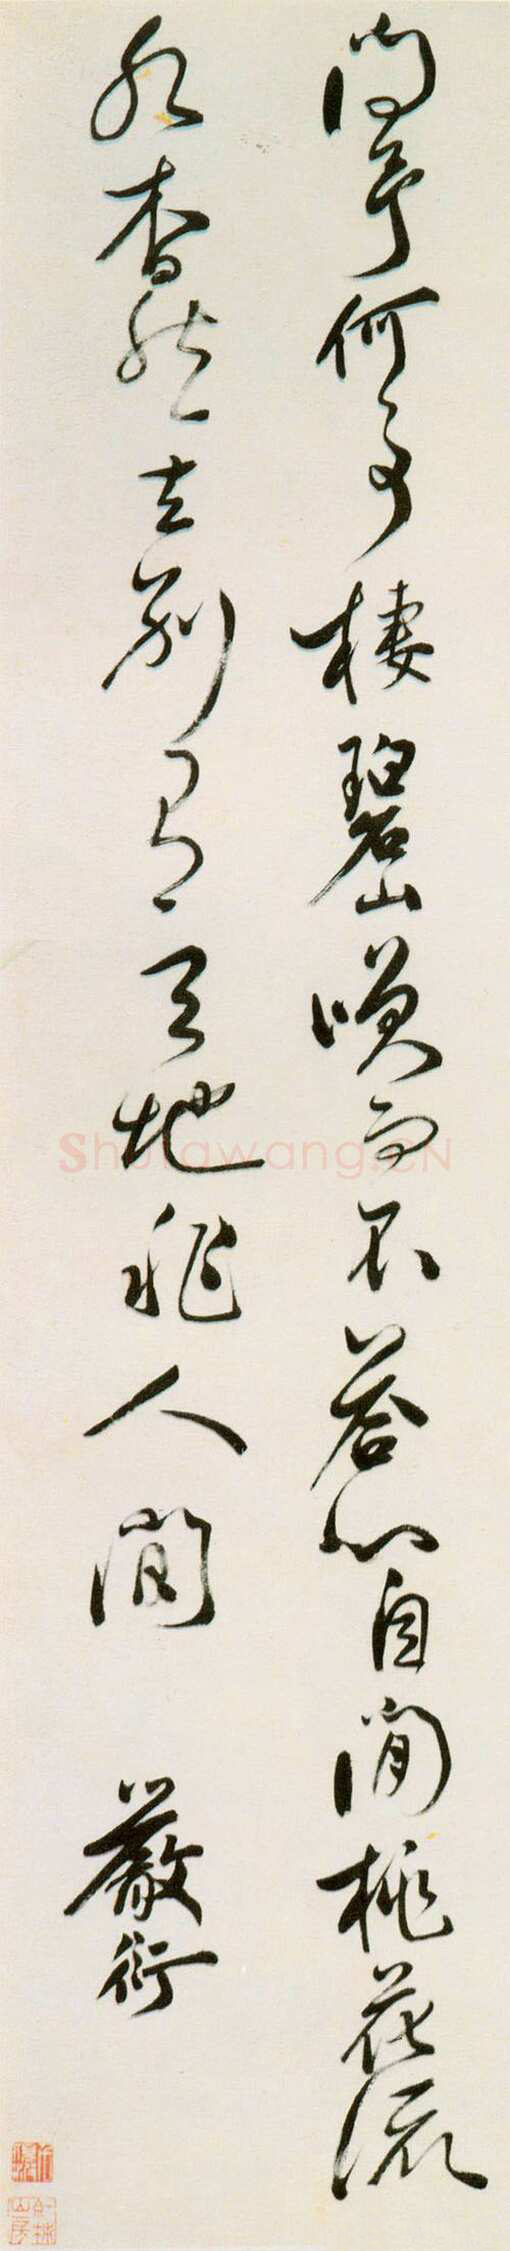 问予何事棲碧山唉而不荅心自閒桃花流
水杳然去別有天地非人間
嚴衍
Shufawang.CN